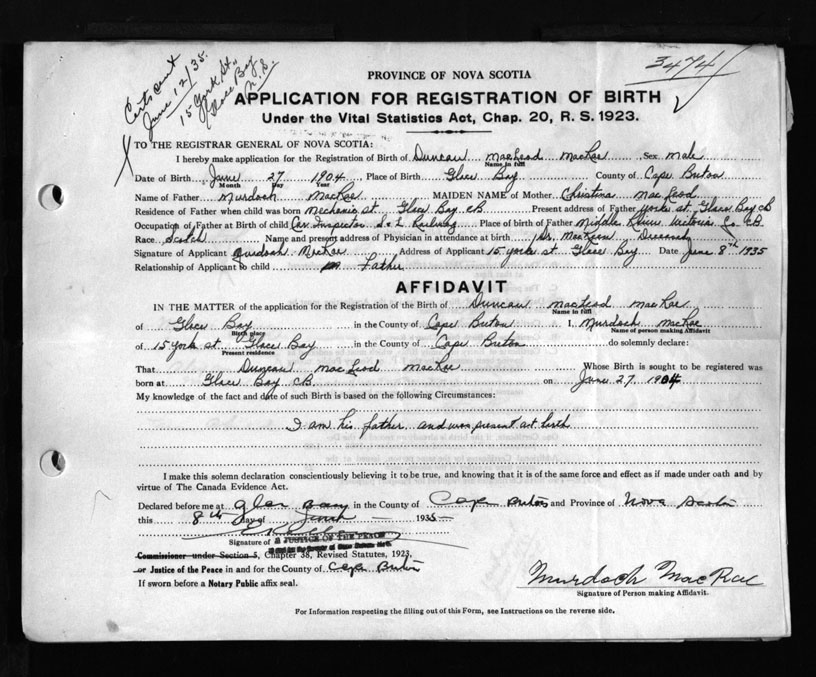 Certs sent
June 12/35.
15 York St.,
Glace Bay
N.S.
3474
PROVINCE OF NOVA SCOTIA
APPLICATION FOR REGISTRATION OF BIRTH
Under the Vital Statistics Act, Chap. 20, R. S. 1923.
TO THE REGISTRAR GENERAL OF NOVA SCOTIA:
I hereby make application for the Registration of Birth of Duncan MacLeod MacRae Sex Male
Name in full
Date of Birth June 27 1904 Place of Birth Glace Bay County of Cape Breton
Month Day Year
Name of Father Murdoch MacRae MAIDEN NAME of Mother Christina MacLeod
Residence of Father when child was born Mechanic St. Glace Bay CB Present address of Father York St. Glace Bay CB
Occupation of Father at Birth of child Car Inspector S & L Railway Place of birth of Father Middle River Victoria Co. CB
Race Scotch Name and present address of Physician in attendance at birth Dr. Deceased
Signature of Applicant Murdoch MacRae Address of Applicant 15 York St Glace Bay Date June 8th 1935
Relationship of Applicant to child Father
AFFIDAVIT
IN THE MATTER of the application for the Registration of the Birth of Duncan MacLeod MacRae
Name in full
of Glace Bay in the County of Cape Breton I, Murdoch MacRae
Birth place Name of person making Affidavit
of 15 York St. Glace Bay in the County of Cape Breton do solemnly declare:
Present residence
That Duncan MacLeod MacRae Whose Birth is sought to be registered was
born at Glace Bay CB on June 27 1904
My knowledge of the fact and date of such Birth is based on the following Circumstances:
I am his father and was present at birth
I make this solemn declaration conscientiously believing it to be true, and knowing that it is of the same force and effect as if made under oath and by
virtue of The Canada Evidence Act.
Declared before me at Glace Bay in the County of Cape Breton and Province of Nova Scotia
this 8th day of June 1935
Signature of A JUSTICE OF THE PEACE
Commissioner under Section 5, Chapter 38, Revised Statutes, 1923,
or Justice of the Peace in and for the County of Cape Breton
If sworn before a Notary Public affix seal.
Murdoch MacRae
Signature of Person making Affidavit.
For Information respecting the filling out of this Form, see Instructions on the reverse side.